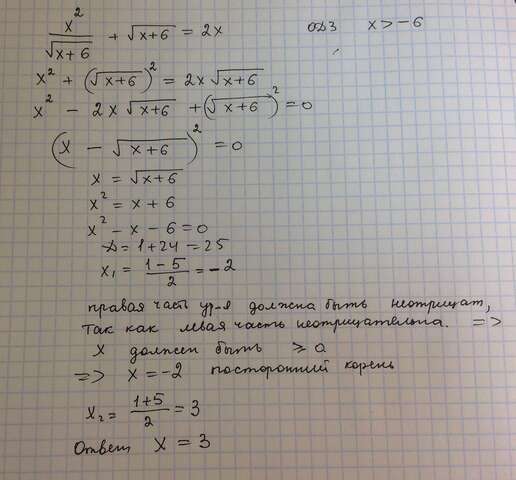 x²/√(x+6) + √(x+6) = 2x ОДЗ x > -6
x² + (√(x+6))² = 2x √(x+6)
x² - 2x √(x+6) + (√(x+6))² = 0
(x - √(x+6))² = 0
x = √(x+6)
x² = x + 6
x² - x - 6 = 0
D = 1 + 24 = 25
x₁ = (1-5)/2 = -2
правая часть ур-я должна быть неотрицат,
так как левая часть неотрицательна. =>
x должен быть ≥ 0
=> x = -2 посторонний корень
x₂ = (1+5)/2 = 3
Ответ x = 3